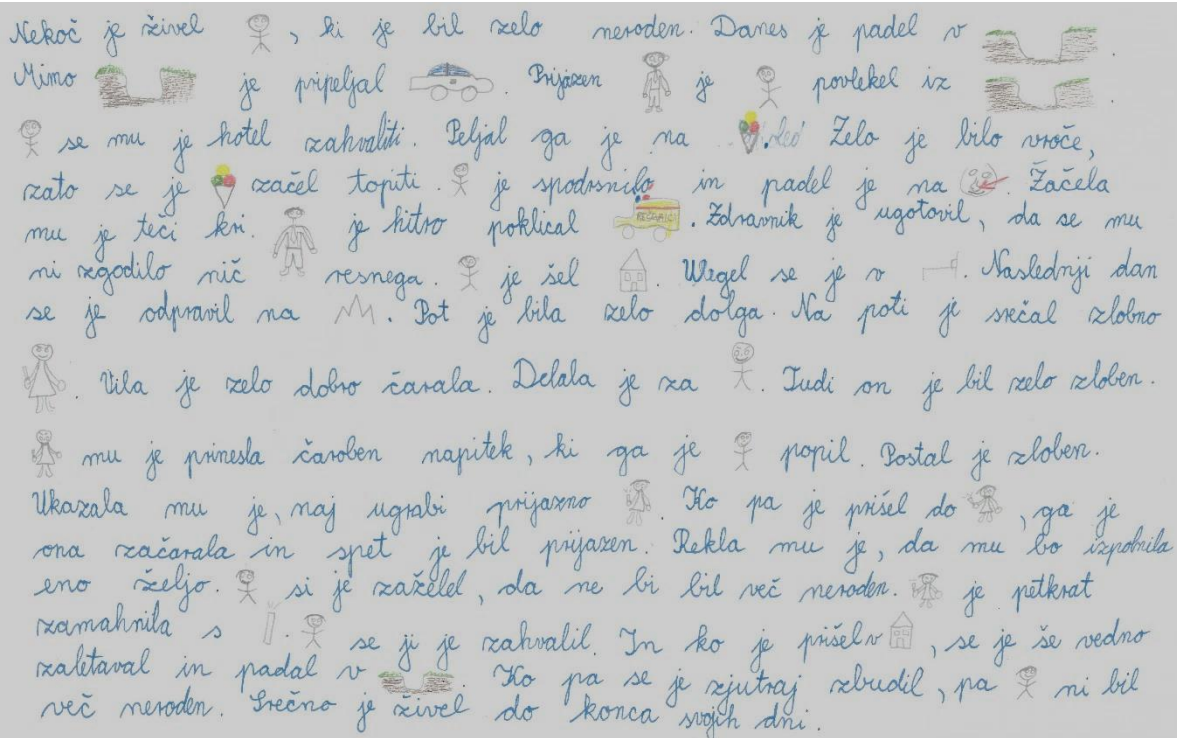 Nekoč je živel , ki je bil zelo neroden. Danes je padel v .
Mimo je pripeljal . Prijazen je povlekel iz .
se mu je hotel zahvaliti. Peljal ga je na . Zelo je bilo vroče,
zato se je začel topiti. je spodrsnilo in padel je na . Začela
mu je teči kri. je hitro poklical REŠEVALCI . Zdravnik je ugotovil, da se mu
ni zgodilo nič resnega. je šel . Wegel se je v . Naslednji dan
se je odpravil na . Pot je bila zelo dolga. Na poti je srečal zlobno
. Vila je zelo dobro čarala. Delala je za . Tudi on je bil zelo zloben.
mu je prinesla čaroben napitek, ki ga je popil. Postal je zloben.
Ukazala mu je, naj ugrabi prijazno . Ko pa je prišel do , ga je
ona začarala in spet je bil prijazen. Rekla mu je, da mu bo izpolnila
eno željo. si je zaželel, da ne bi bil več neroden. je petkrat
zamahnila s . se ji je zahvalil. In ko je prišel v , se je še vedno
zaletaval in padal v . Ko pa se je zjutraj zbudil, pa ni bil
več neroden. Srečno je živel do konca svojih dni.